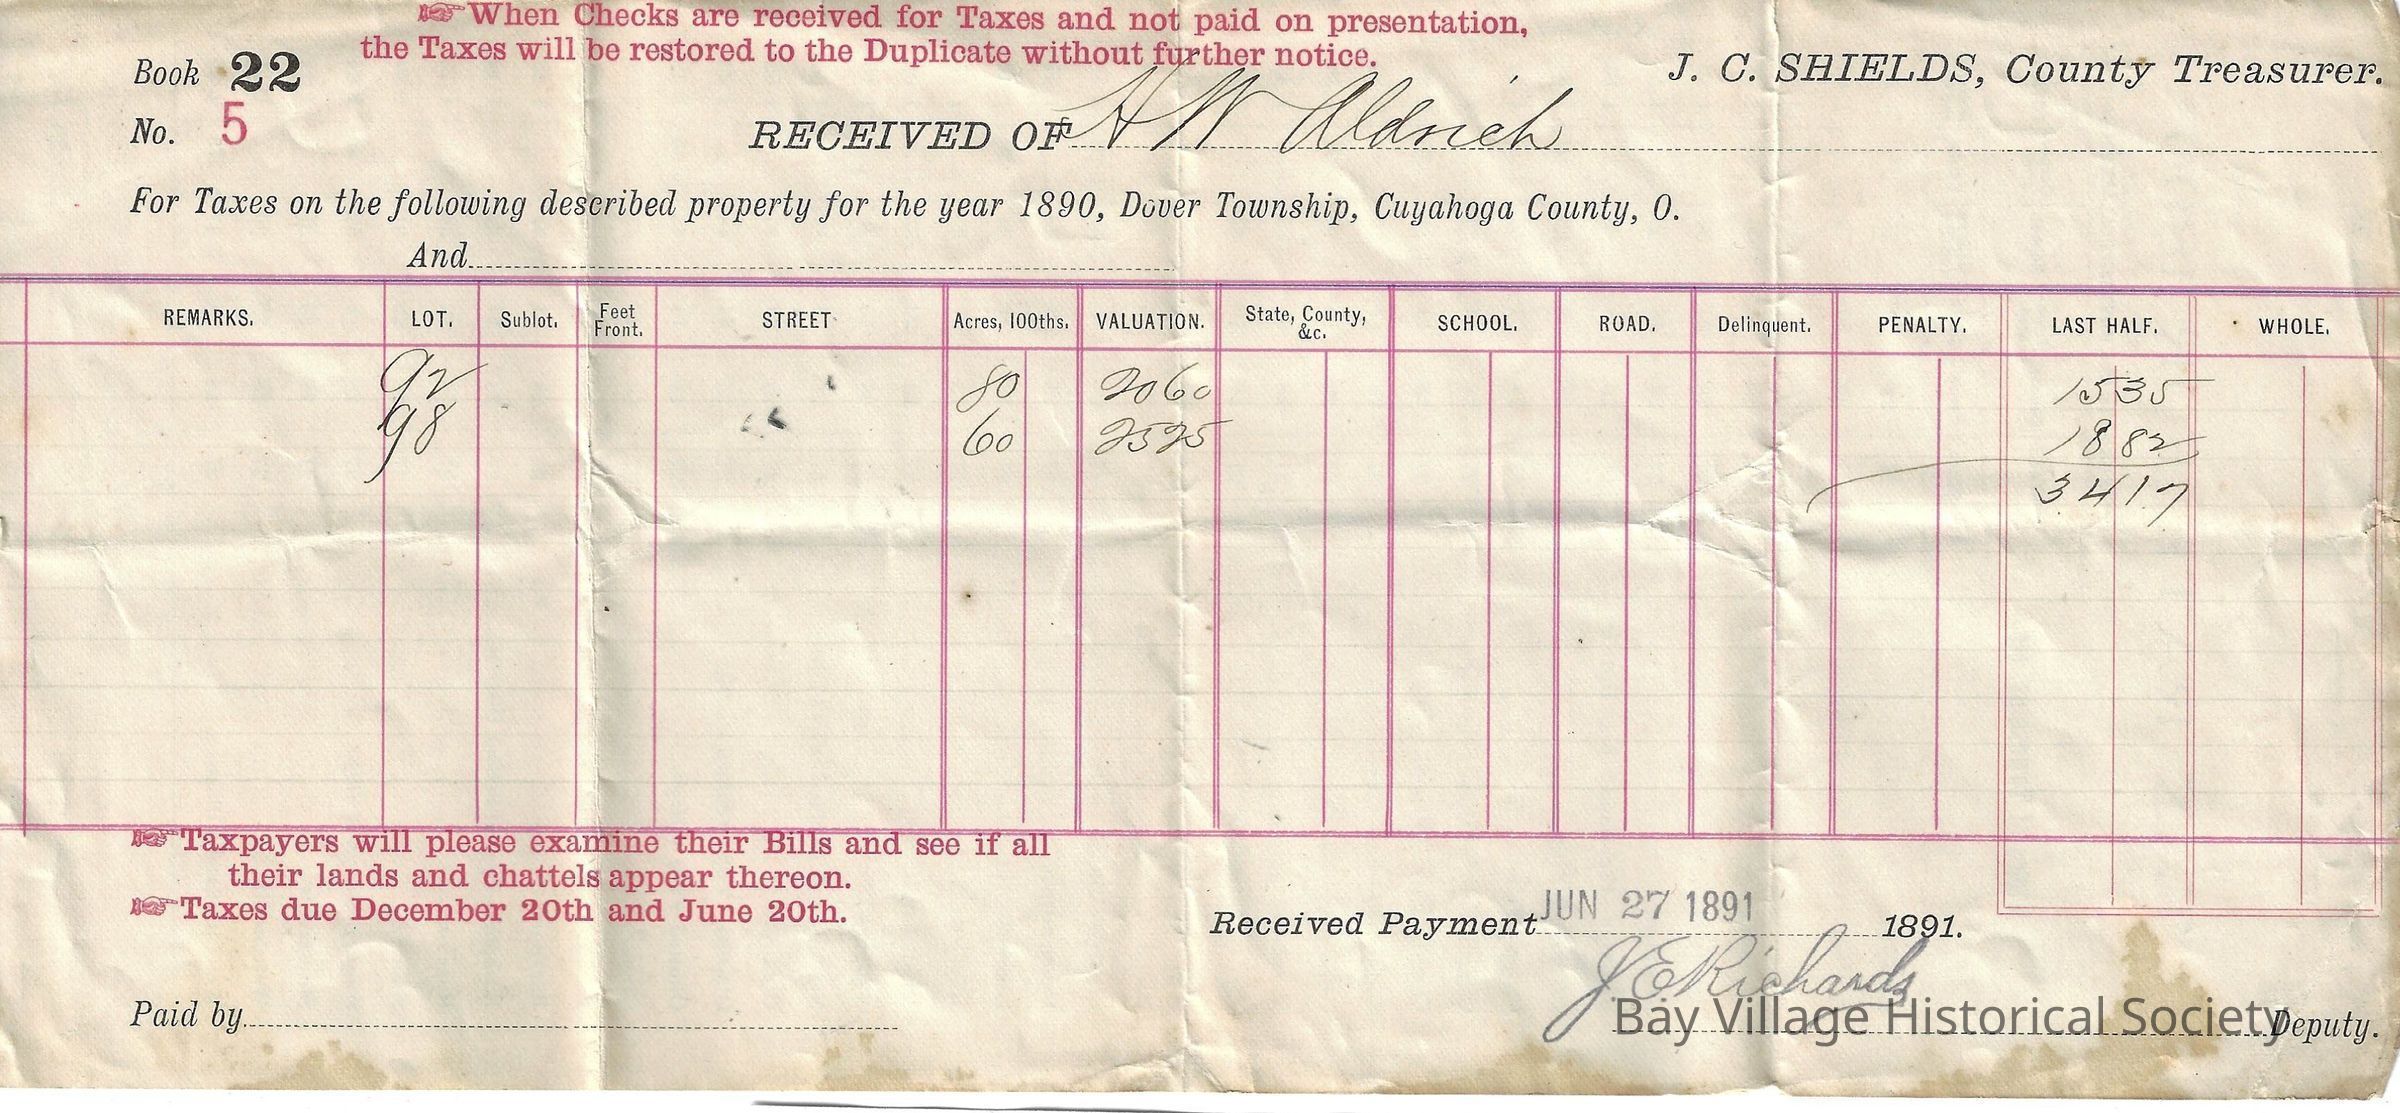 ☞ When Checks are received for Taxes and not paid on presentation,
the Taxes will be restored to the Duplicate without further notice.
Book 22
J. C. SHIELDS, County Treasurer.
No. 5
RECEIVED OF H W Aldrich
For Taxes on the following described property for the year 1890, Dover Township, Cuyahoga County, O.
And
REMARKS. LOT. Sublot. Feet Front. STREET Acres, 100ths. VALUATION. State, County, &c. SCHOOL. ROAD. Delinquent. PENALTY. LAST HALF. WHOLE.
92 80 2060 15 35
98 60 2525 18 82
34 17
☞ Taxpayers will please examine their Bills and see if all
their lands and chattels appear thereon.
☞ Taxes due December 20th and June 20th.
Received Payment JUN 27 1891 1891.
J E Richards
Paid by
Deputy.
Bay Village Historical Society